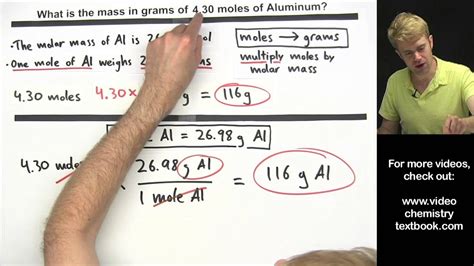 What is the mass in grams of 4.30 moles of Aluminum?
• The molar mass of Al is 26.
• One mole of Al weighs
moles → grams
multiply moles by
molar mass
4.30 moles 4.30 × g = 116 g
Al = 26.98 g Al
4.30 26.98 g Al
1 mole Al
= 116 g Al
For more videos,
check out:
www.video
chemistry
textbook.com